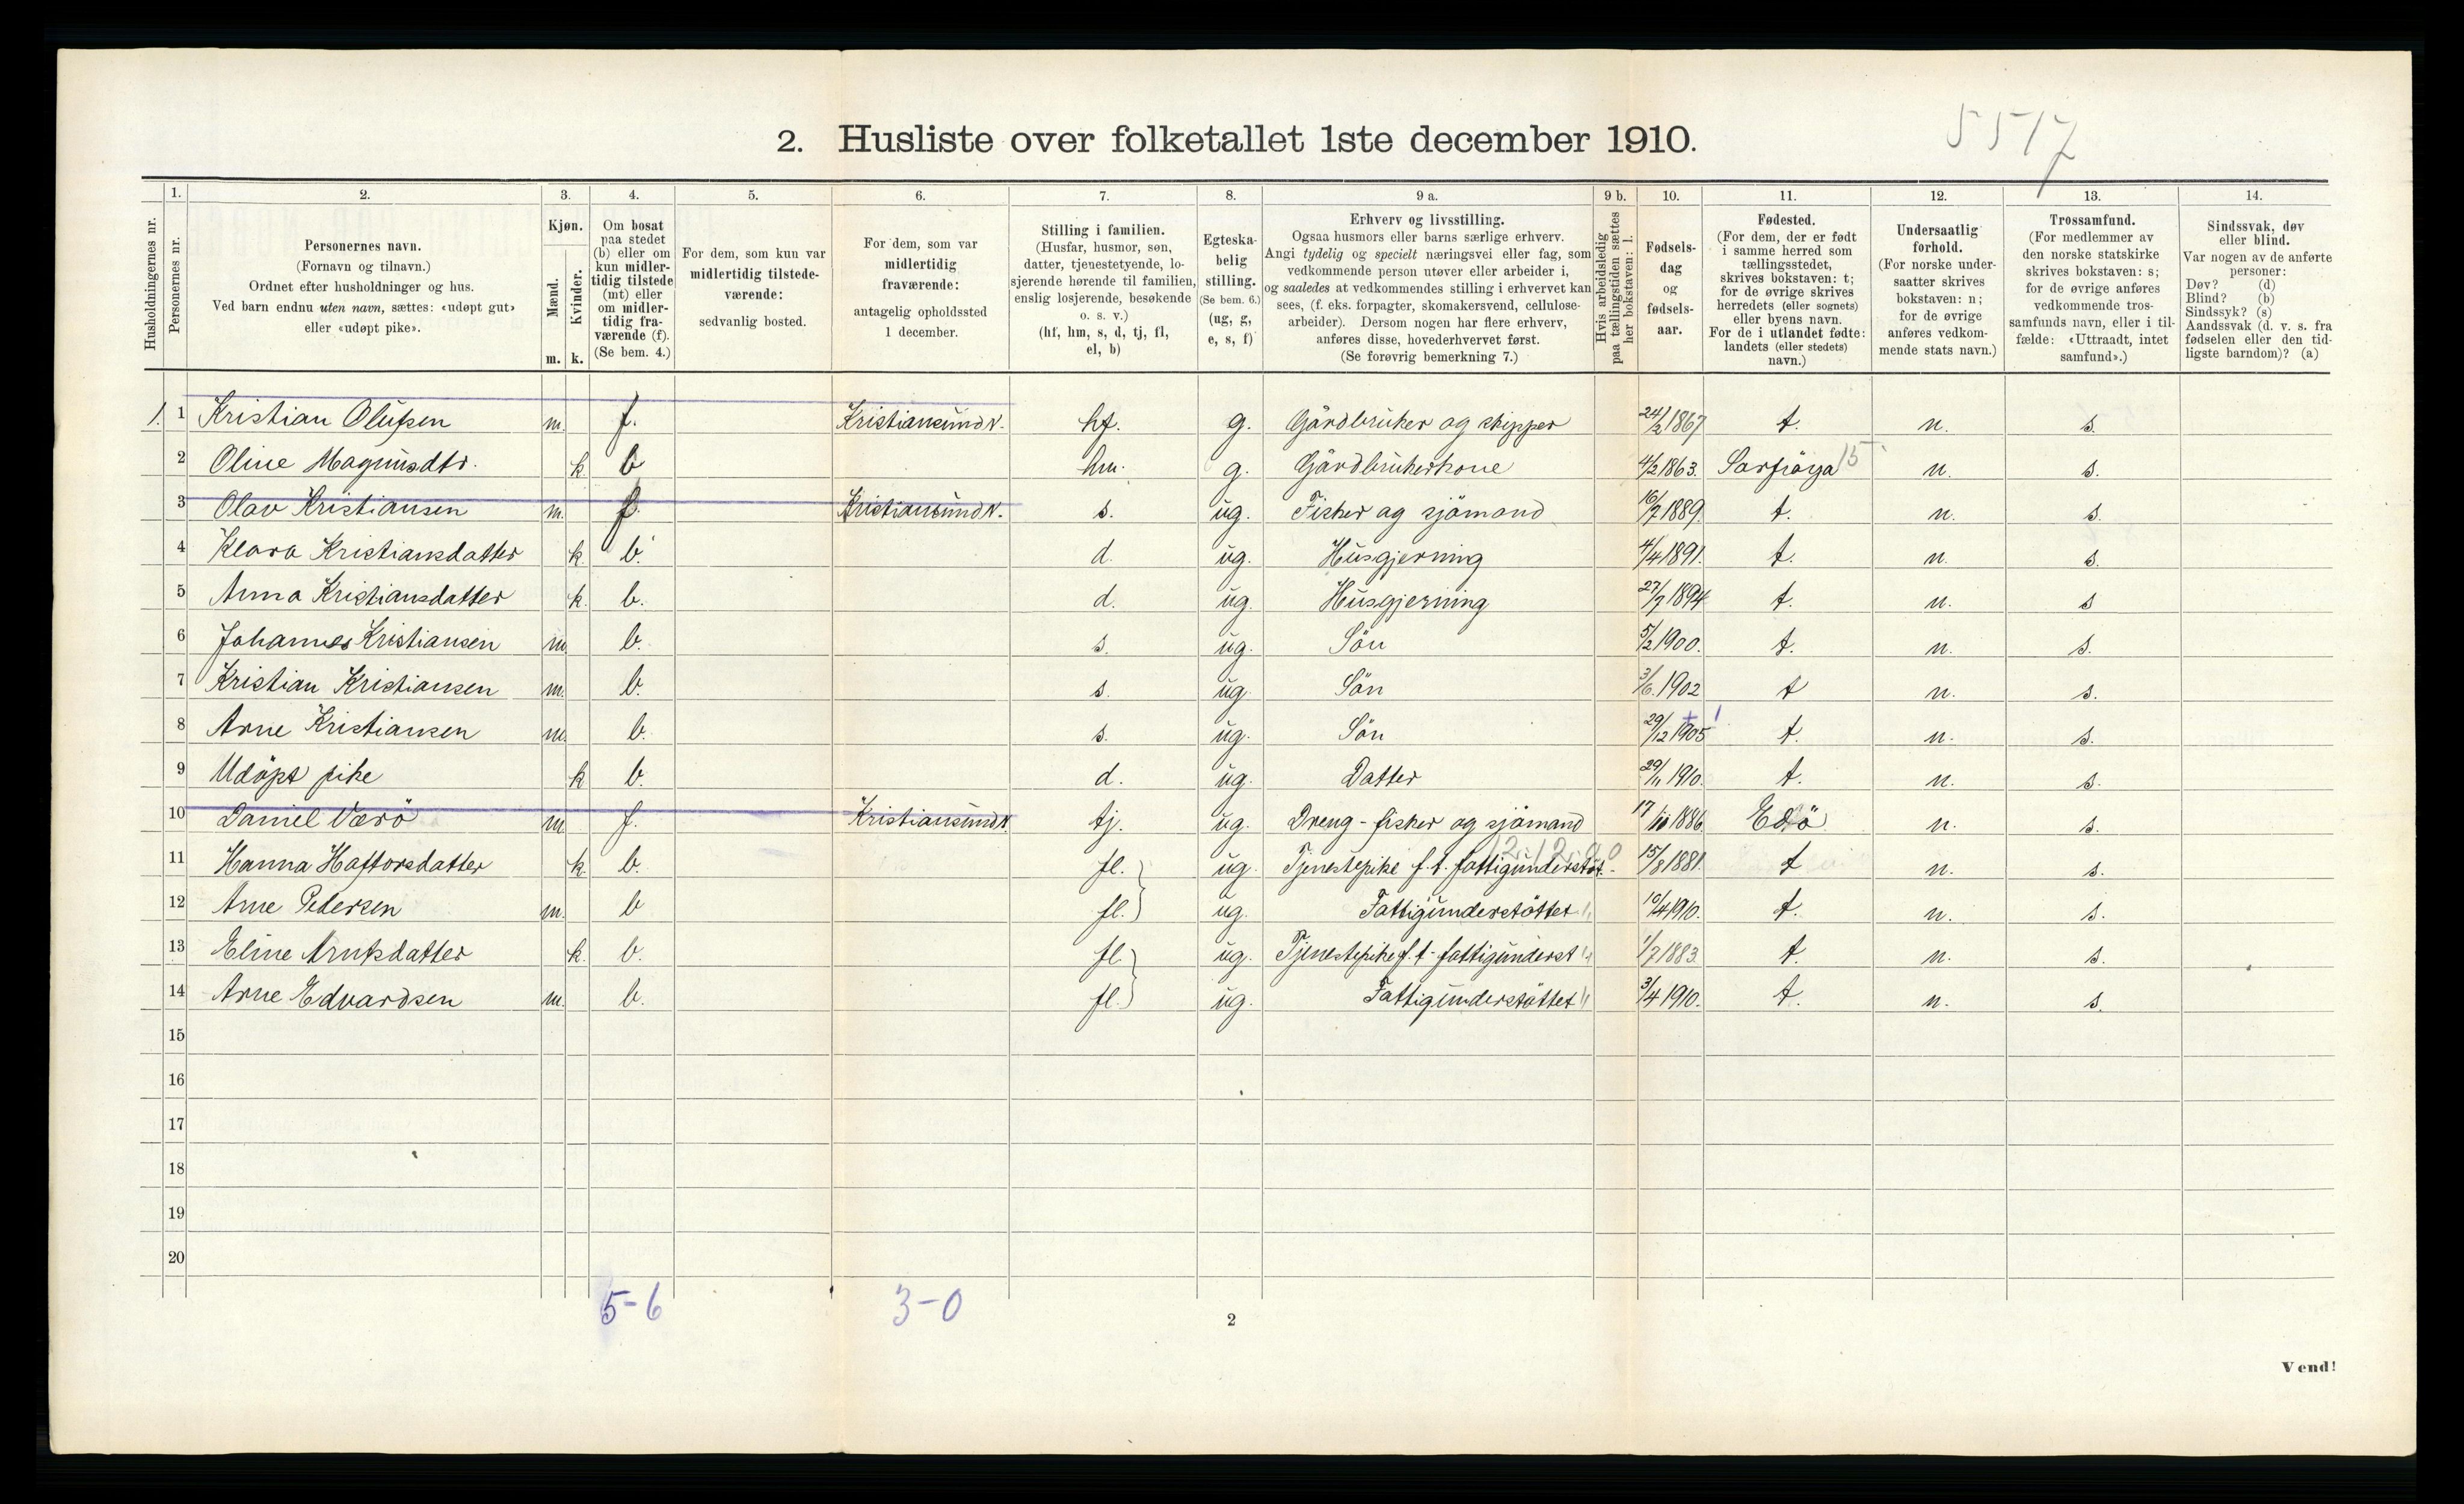 5517
2. Husliste over folketallet 1ste december 1910.
Husholdningernes nr.
1. Personernes nr.
2. Personernes navn. (Fornavn og tilnavn.) Ordnet efter husholdninger og hus. Ved barn endnu uten navn, sættes: «udøpt gut» eller «udøpt pike».
3. Kjøn. Mænd. m. Kvinder. k.
4. Om bosat paa stedet (b) eller om kun midlertidig tilstede (mt) eller om midlertidig fraværende (f). (Se bem. 4.)
5. For dem, som kun var midlertidig tilstedeværende: sedvanlig bosted.
6. For dem, som var midlertidig fraværende: antagelig opholdssted 1 december.
7. Stilling i familien. (Husfar, husmor, søn, datter, tjenestetyende, losjerende hørende til familien, enslig losjerende, besøkende o. s. v.) (hf, hm, s, d, tj, fl, el, b)
8. Egteskabelig stilling. (Se bem. 6.) (ug, g, e, s, f)
9 a. Erhverv og livsstilling. Ogsaa husmors eller barns særlige erhverv. Angi tydelig og specielt næringsvei eller fag, som vedkommende person utøver eller arbeider i, og saaledes at vedkommendes stilling i erhvervet kan sees, (f. eks. forpagter, skomakersvend, cellulosearbeider). Dersom nogen har flere erhverv, anføres disse, hovederhvervet først. (Se forøvrig bemerkning 7.)
9 b. Hvis arbeidsledig paa tællingstiden sættes her bokstaven: l.
10. Fødselsdag og fødselsaar.
11. Fødested. (For dem, der er født i samme herred som tællingsstedet, skrives bokstaven: t; for de øvrige skrives herredets (eller sognets) eller byens navn. For de i utlandet fødte: landets (eller stedets) navn.)
12. Undersaatlig forhold. (For norske undersaatter skrives bokstaven: n; for de øvrige anføres vedkommende stats navn.)
13. Trossamfund. (For medlemmer av den norske statskirke skrives bokstaven: s; for de øvrige anføres vedkommende trossamfunds navn, eller i tilfælde: «Uttraadt, intet samfund».)
14. Sindssvak, døv eller blind. Var nogen av de anførte personer: Døv? (d) Blind? (b) Sindssyk? (s) Aandssvak (d. v. s. fra fødselen eller den tidligste barndom)? (a)
1. 1 Kristian Olufsen m. f. Kristiansund N. hf. g. Gårdbruker og skipper 24/2 1867 t. n. s.
2 Oline Magnusdtr. k b hm. g. Gårdbrukerkone 4/2 1863. 15 n. s.
3 Olav Kristiansen m. f. Kristiansund N. s. ug. Fisker og sjömand 16/7 1889. t. n. s.
4 Klara Kristiansdatter k. b. d. ug. Husgjerning 4/4 1891. t. n. s.
5 Anna Kristiansdatter k. b. d. ug. Husgjerning 27/7 1894 t. n. s
6 Johannes Kristiansen m. b. s. ug. Sön 5/2 1900. t. n. s.
7 Kristian Kristiansen m. b. s. ug. Sön 3/6. 1902 t n. s.
8 Arne Kristiansen m. b. s. ug. Sön 29/12 1905 t. n. s.
9 Udöpt pike k b. d. ug. Datter 29/11 1910. t. n. s.
10 Daniel Værö m. f. Kristiansund N. tj. ug. Dreng - fisker og sjömand 17/10 1886. Edö n. s.
11 Hanna Haftorsdatter k. b. fl. ug. Tjenestepike f. t. fattigunderstöt. 15/8 1881. t n. s.
12 Arne Pedersen m. b fl. ug. Fattigunderstöttet 10/4 1910. t. n. s.
13 Eline Arntsdatter k. b. fl. ug. Tjenestepike f. t. fattigunderst 1/7 1883. t. n. s.
14 Arne Edvardsen m. b. fl. ug. Fattigunderstöttet 3/4 1910. t. n. s.
15
16
17
18
19
20
5-6 3-0
2
Vend!